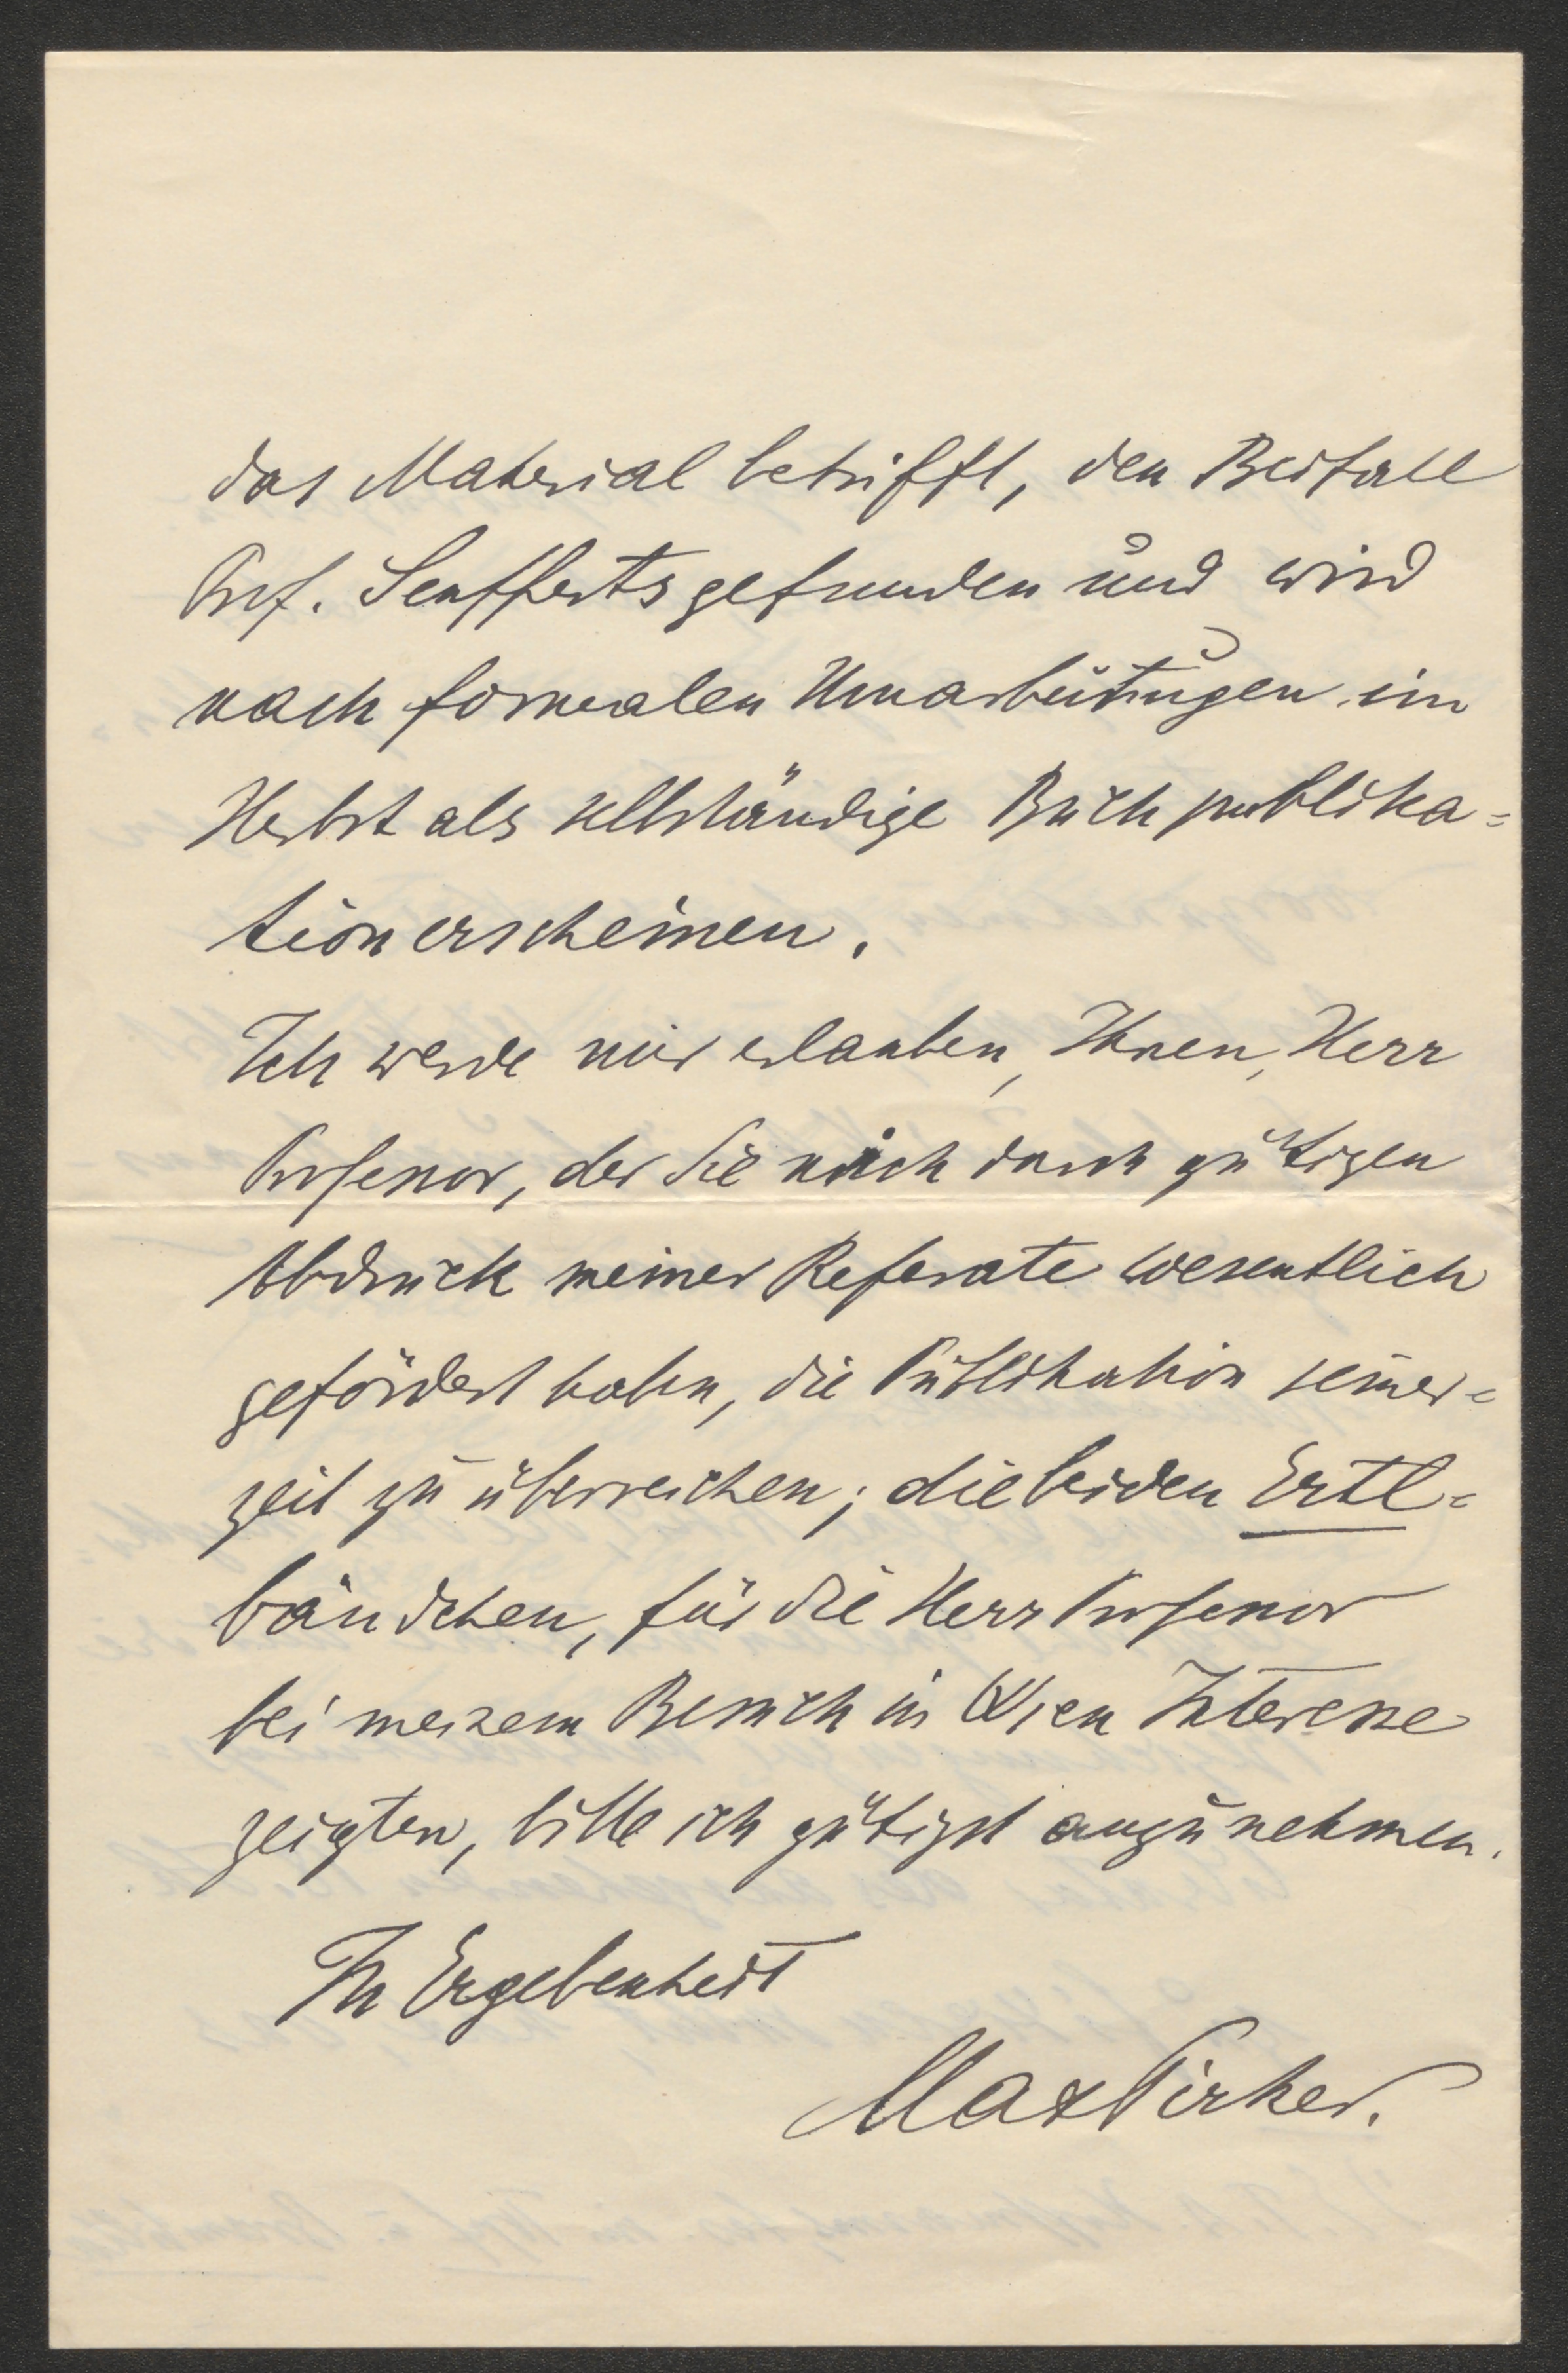 das Material betrifft, den Beifall
Prof. Seufferts gefunden und wird
nach formalen Umarbeitungen im
Herbst als selbständige Buchpublika=
tion erscheinen.
Ich werde mir erlauben, Ihnen, Herr
Professor, der Sie mich durch gütigen
Abdruck meiner Referate wesentlich
gefördert haben, die Publikation seiner=
zeit zu überreichen; die beiden Ertl=
bändchen, für die Herr Professor
bei meinem Besuch in Wien Interesse
zeigten, bitte ich gütigst anzunehmen.
In Ergebenheit
Max Pirker.